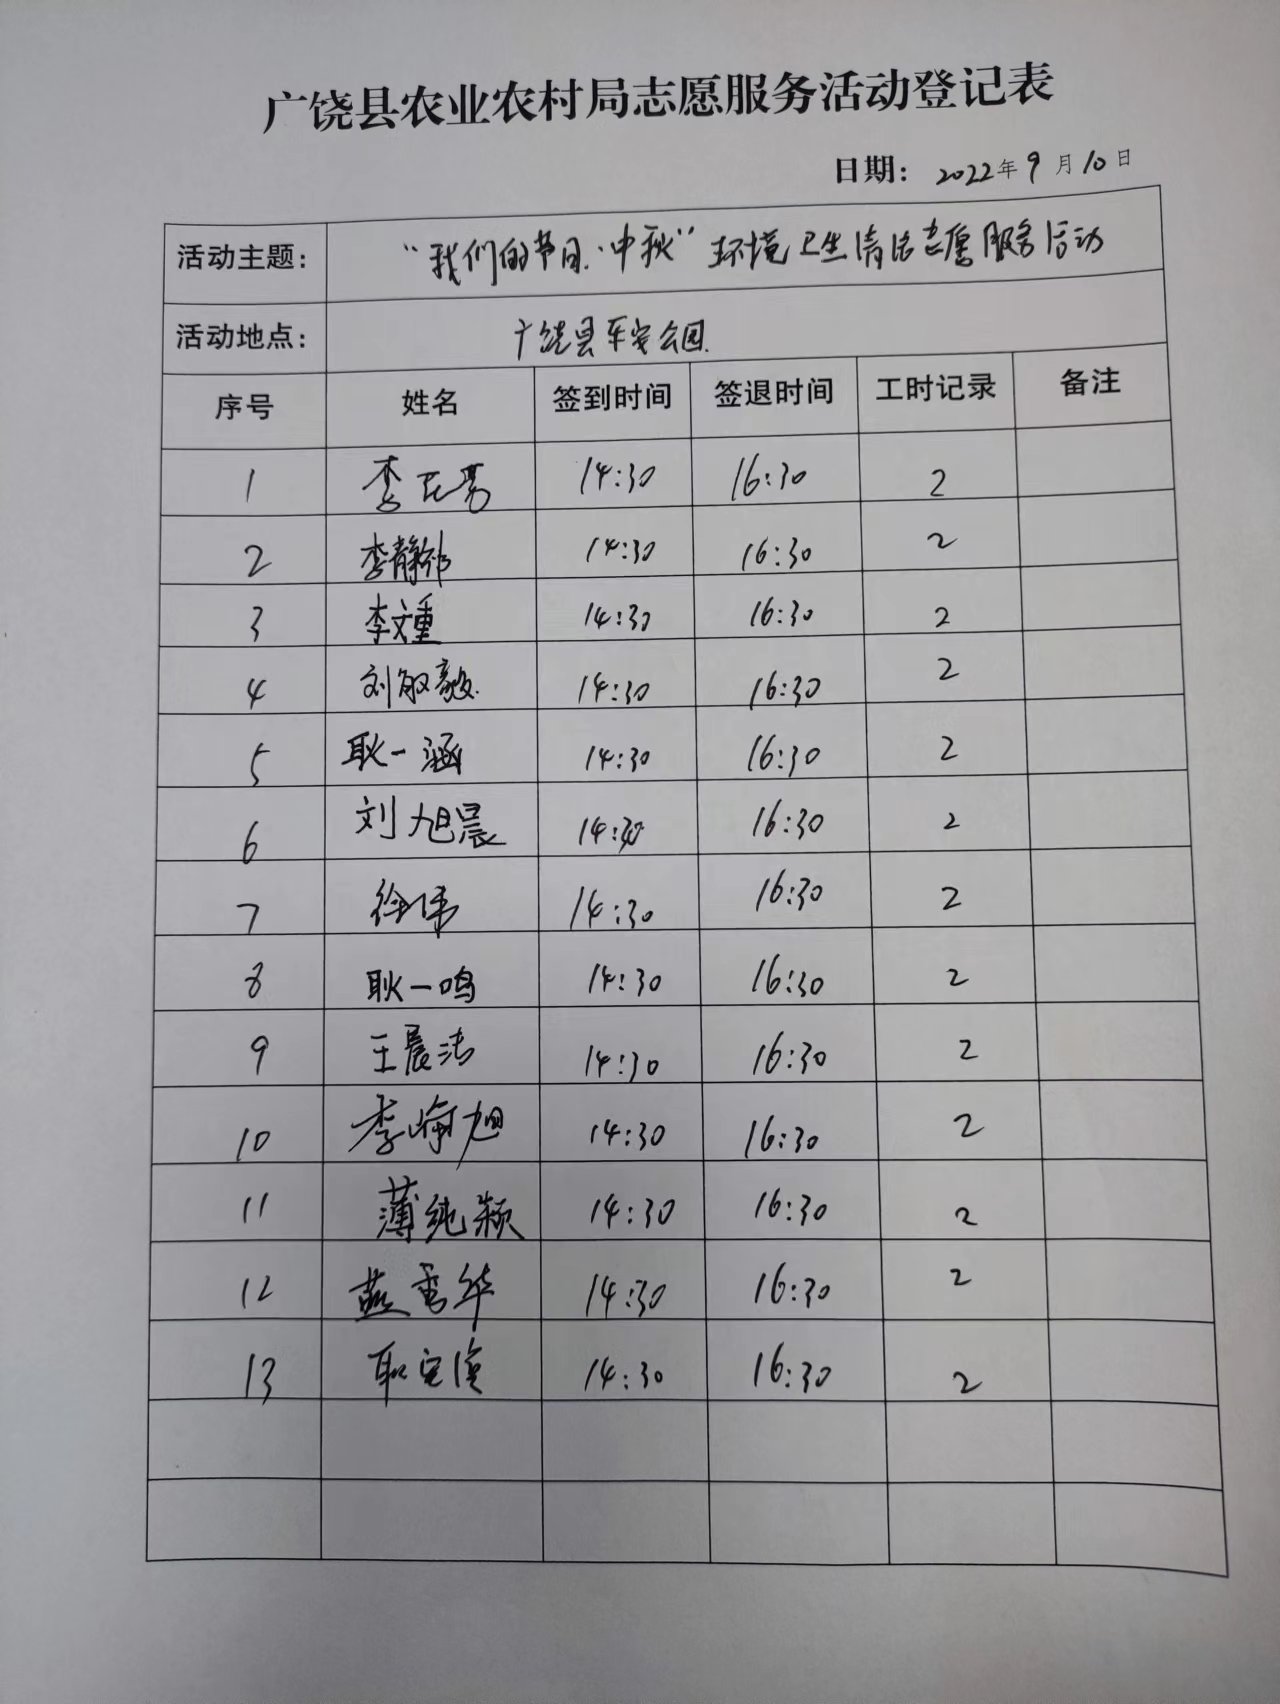 广饶县农业农村局志愿服务活动登记表
日期: 2022年9月10日
活动主题: “我们的节日·中秋”环境卫生清洁志愿服务活动
活动地点: 广饶县平安公园
序号 姓名 签到时间 签退时间 工时记录 备注
1 李 14:30 16:30 2
2 李静 14:30 16:30 2
3 李文重 14:30 16:30 2
4 刘敏毅 14:30 16:30 2
5 耿一涵 14:30 16:30 2
6 刘旭晨 14:30 16:30 2
7 徐伟 14:30 16:30 2
8 耿一鸣 14:30 16:30 2
9 王晨洁 14:30 16:30 2
10 李崎旭 14:30 16:30 2
11 薄纯颖 14:30 16:30 2
12 燕秀华 14:30 16:30 2
13 14:30 16:30 2